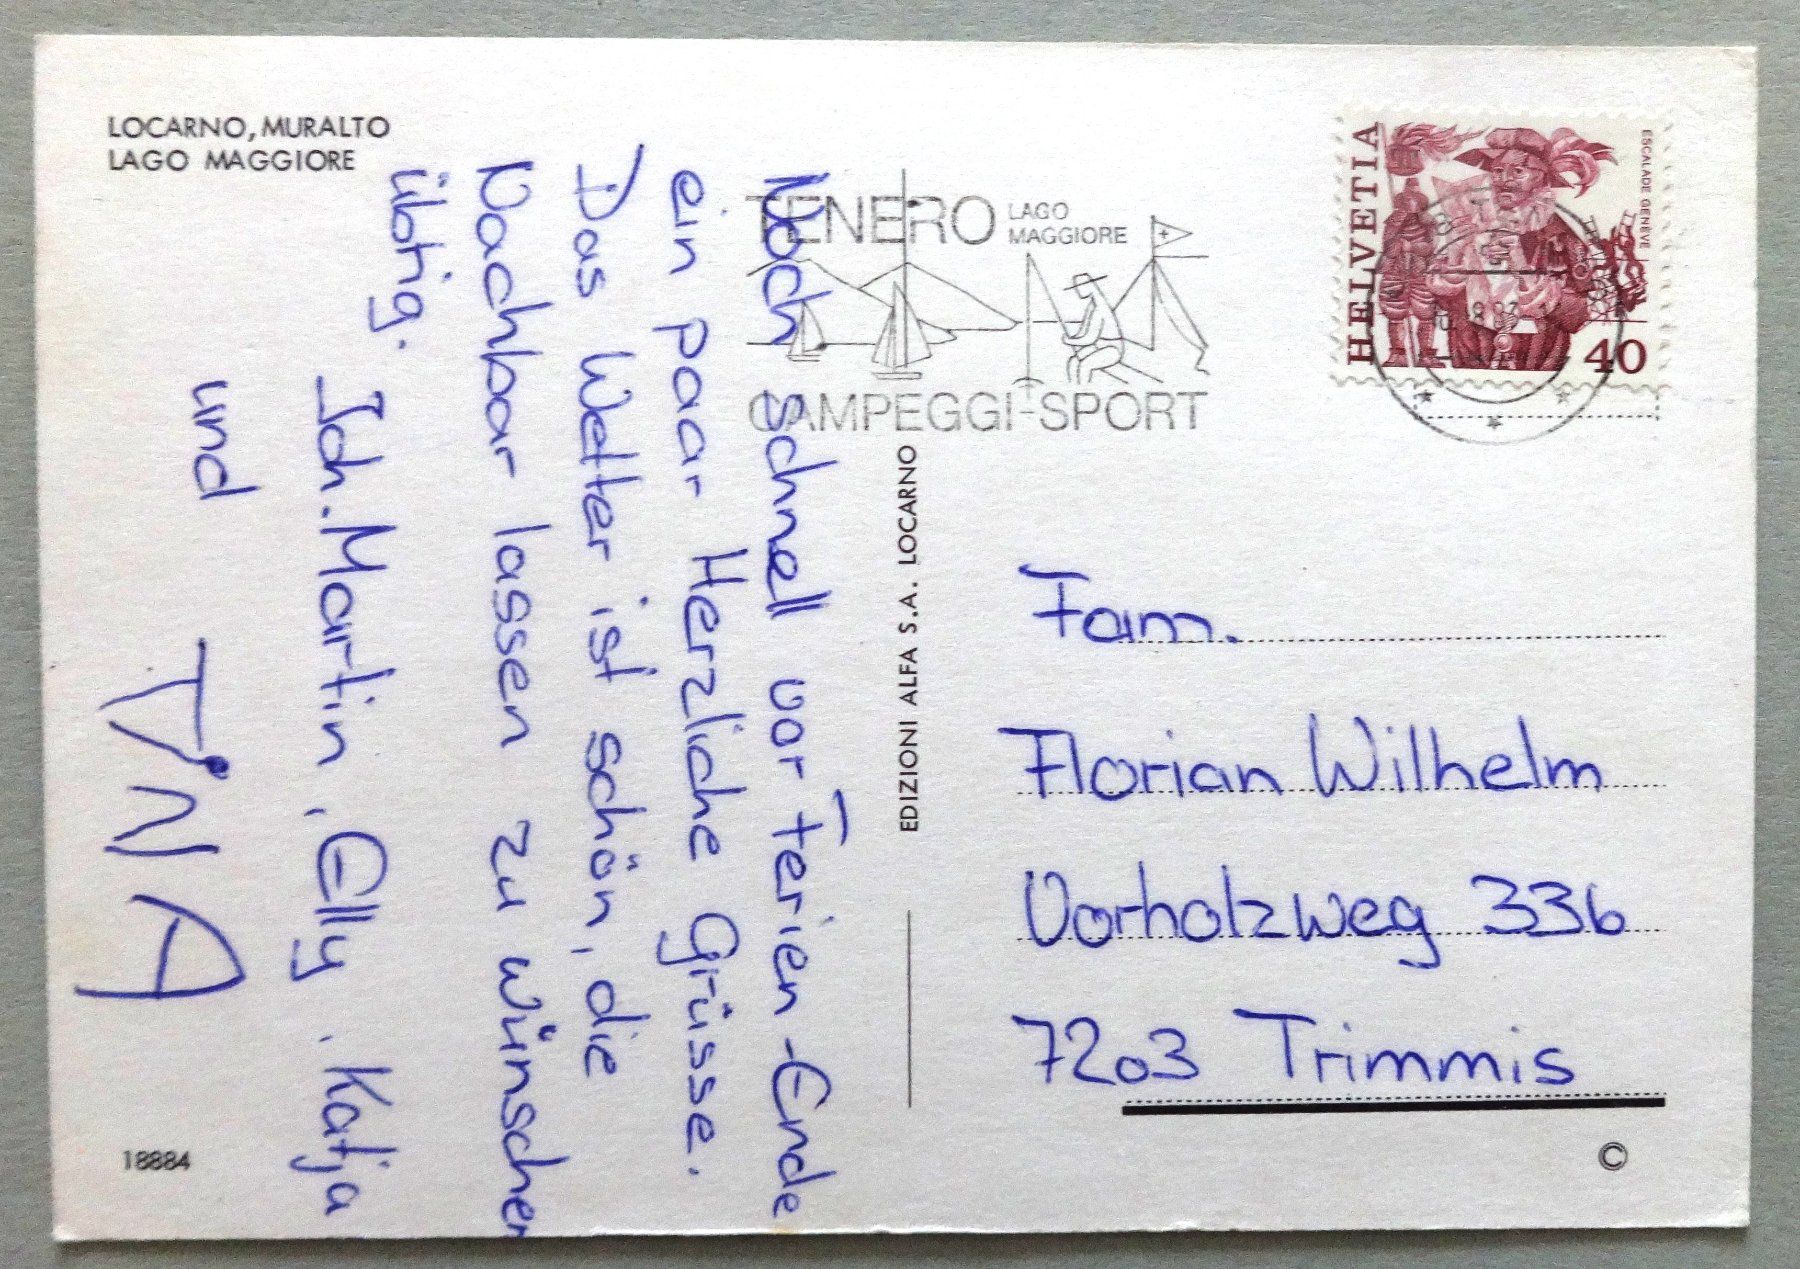 LOCARNO, MURALTO
LAGO MAGGIORE
Noch schnell vor Ferien-Ende
ein paar Herzliche Grüsse.
Das Wetter ist schön, die
Nachbar lassen zu wünschen
übtig.
Joh. Martin, Elly, Katja
und
TiNA
18884
EDIZIONI ALFA S.A. LOCARNO
TENERO LAGO
MAGGIORE
CAMPEGGI-SPORT
HELVETIA
ESCALADE GENÈVE
40
Fam.
Florian Wilhelm
Vorholzweg 336
7203 Trimmis
©